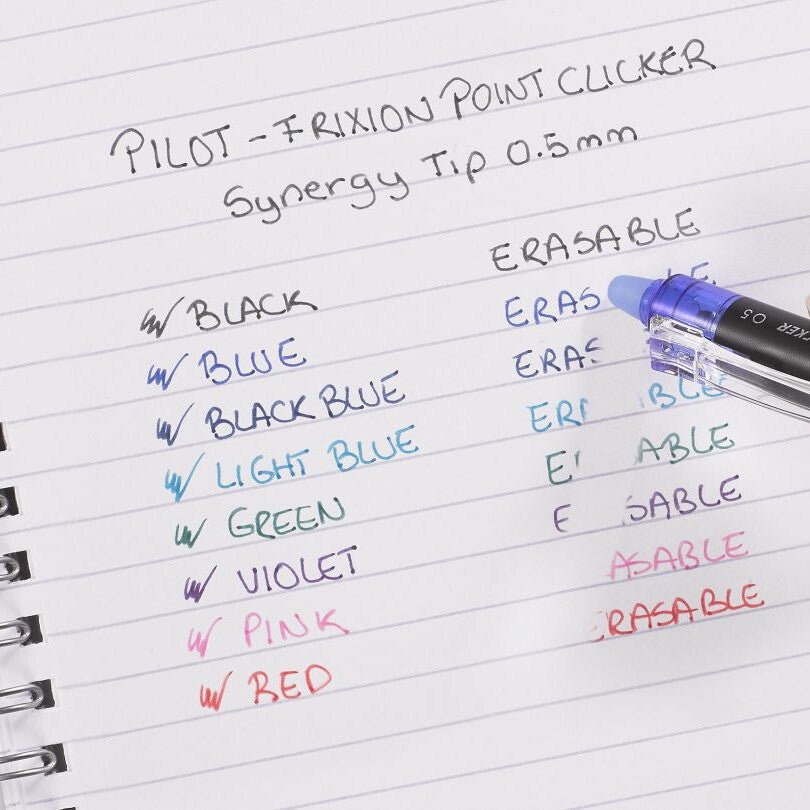 PILOT - FRIXION POINT CLICKER
Synergy Tip 0.5mm
ERASABLE
BLACK
ERAS LE
BLUE
ERAS
BLACK BLUE
ER BLE
LIGHT BLUE
E ABLE
GREEN
E SABLE
VIOLET
ASABLE
PINK
RASABLE
RED
CKER 0.5